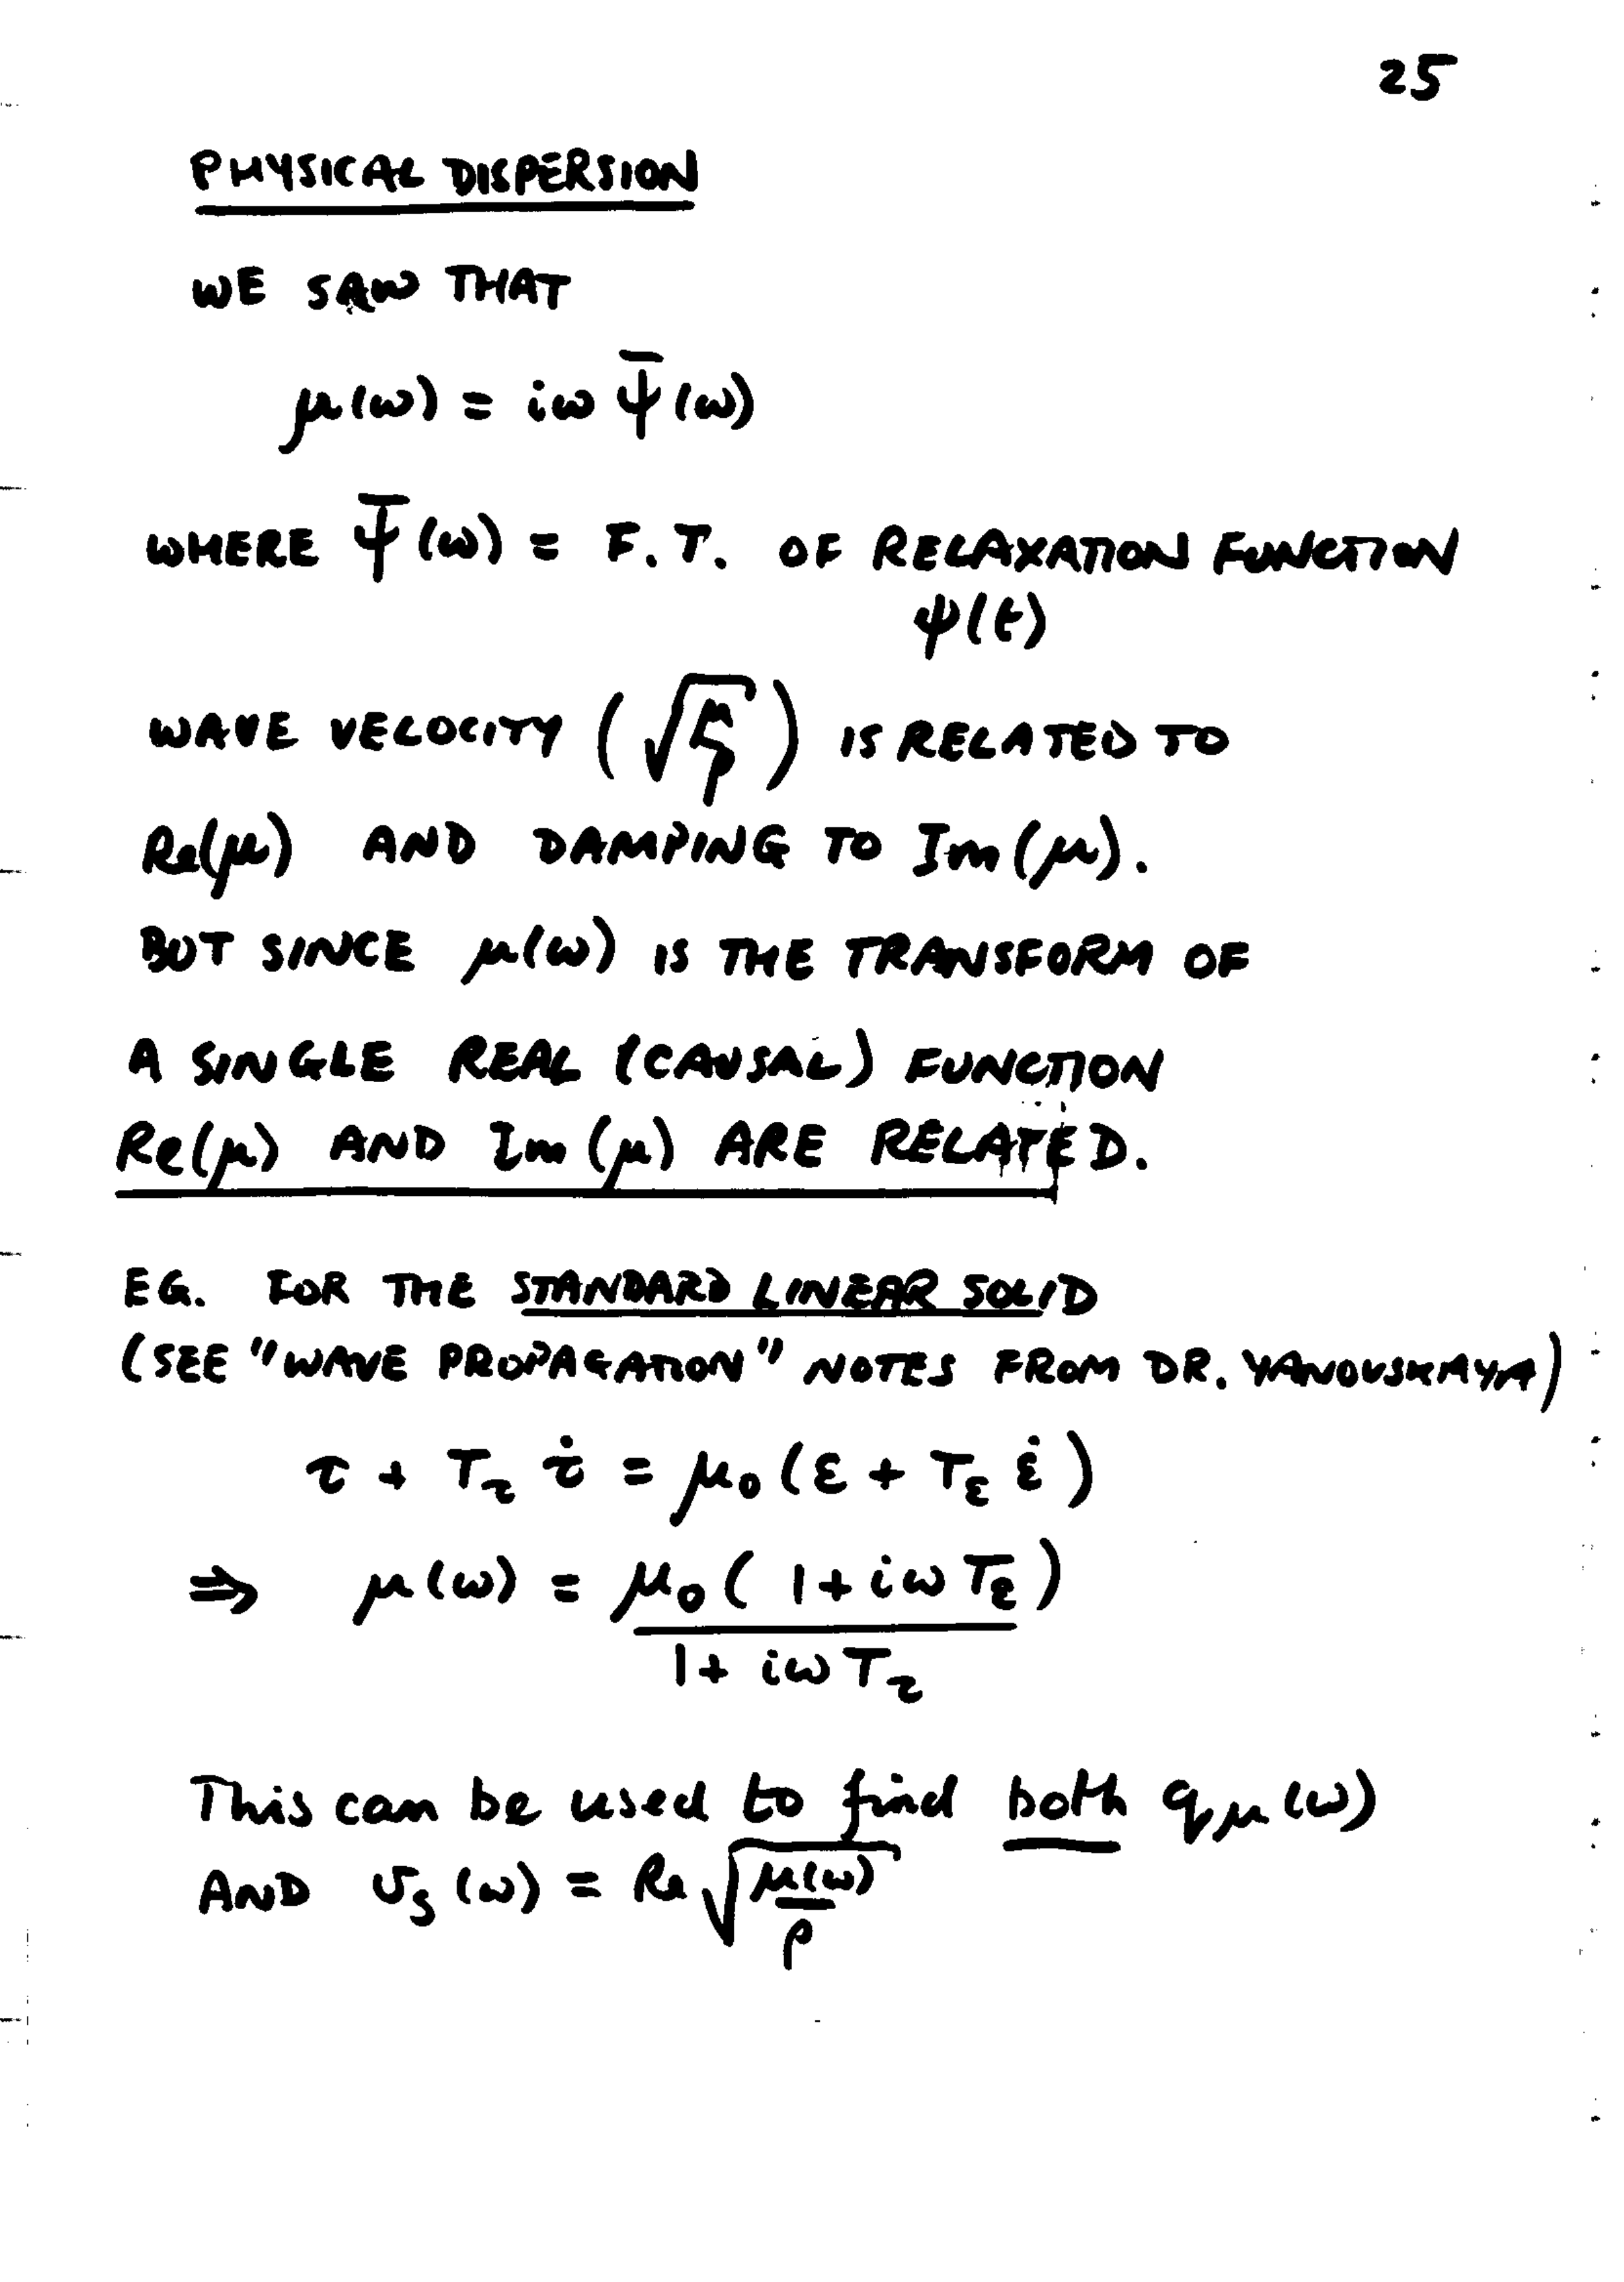 25
PHYSICAL DISPERSION
WE SAW THAT
μ(ω) = iω Ψ̄(ω)
WHERE Ψ̄(ω) = F.T. OF RELAXATION FUNCTION
ψ(t)
WAVE VELOCITY (√(μ/ρ)) IS RELATED TO
Re(μ) AND DAMPING TO Im(μ).
BUT SINCE μ(ω) IS THE TRANSFORM OF
A SINGLE REAL (CAUSAL) FUNCTION
Re(μ) AND Im(μ) ARE RELATED.
EG. FOR THE STANDARD LINEAR SOLID
(SEE "WAVE PROPAGATION" NOTES FROM DR. YANOVSKAYA)
τ + T_τ τ̇ = μ₀(ε + T_ε ε̇)
⇒ μ(ω) = μ₀(1 + iω T_ε)
1 + iω T_τ
This can be used to find both q_μ(ω)
AND v_s(ω) = Re √(μ(ω)/ρ)